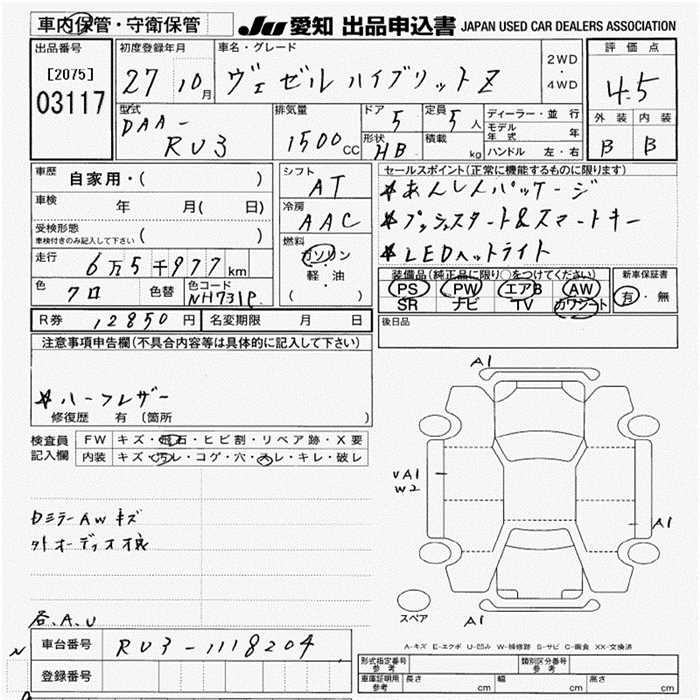 車内保管・守衛保管
JU 愛知 出品申込書 JAPAN USED CAR DEALERS ASSOCIATION
出品番号
[2075]
03117
初度登録年月
27 10月
車名・グレード
ヴェゼル ハイブリットZ
2WD
・
4WD
評価点
4.5
外装 内装
B B
型式
DAA-
RU3
排気量
1500 CC
ドア 5
定員 5人
形状 HB
積載 kg
ディーラー・並行
モデル年式 年
ハンドル 左・右
車歴 自家用・( )
車検 年 月( 日)
受検形態
車検付きのみ記入して下さい ( )
走行 6万5千977km
色 クロ
色替
色コード
NH731P
シフト
AT
冷房
AAC
燃料
ガソリン
軽・油
( )
セールスポイント(正常に機能するものに限ります)
★あんしんパッケージ
★プッシュスタート&スマートキー
★LEDヘットライト
装備品(純正品に限り○をつけてください)
PS PW エアB AW
SR ナビ TV カワシート
新車保証書
有・無
R券 12850円
名変期限 月 日
後日品
注意事項申告欄(不具合内容等は具体的に記入して下さい)
★ハーフレザー
修復歴 有 〔箇所 〕
検査員
記入欄
FW キズ・飛石・ヒビ割・リペア跡・X要
内装 キズ・汚レ・コゲ・穴・スレ・キレ・破レ
ロミラーAWキズ
外オーディオ
各、A、U
A1
UA1
W2
A1
A1
スペア
A-キズ E-エクボ U-凹み W-補修跡 S-サビ C-腐食 XX-交換済
車台番号 RU3-1118204
登録番号
型式指定番号
参考
類別区分番号
参考
車庫証明用
参考
長さ cm
幅 cm
高さ cm